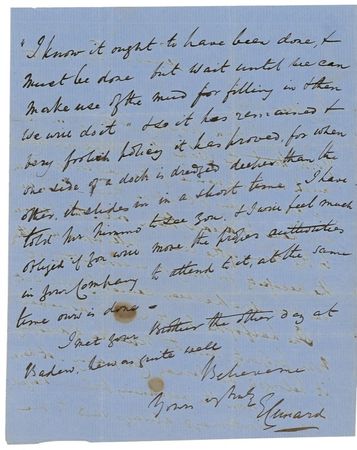 "I know it ought to have been done, &
must be done but wait until we can
make use of the mud for filling in & then
we will do it" & so it has remained &
very foolish policy it has proved, for when
one side of a dock is dredged deeper than the
other, it slides in in a short time - I have
told Mr. Nimmo to see you, & I will feel much
obliged if you will move the proper authorities
in your Company to attend to it at the same
time ours is done -
I met your Brother the other day at
Baden. he was quite well
Believe me
Yours truly
E Cunard